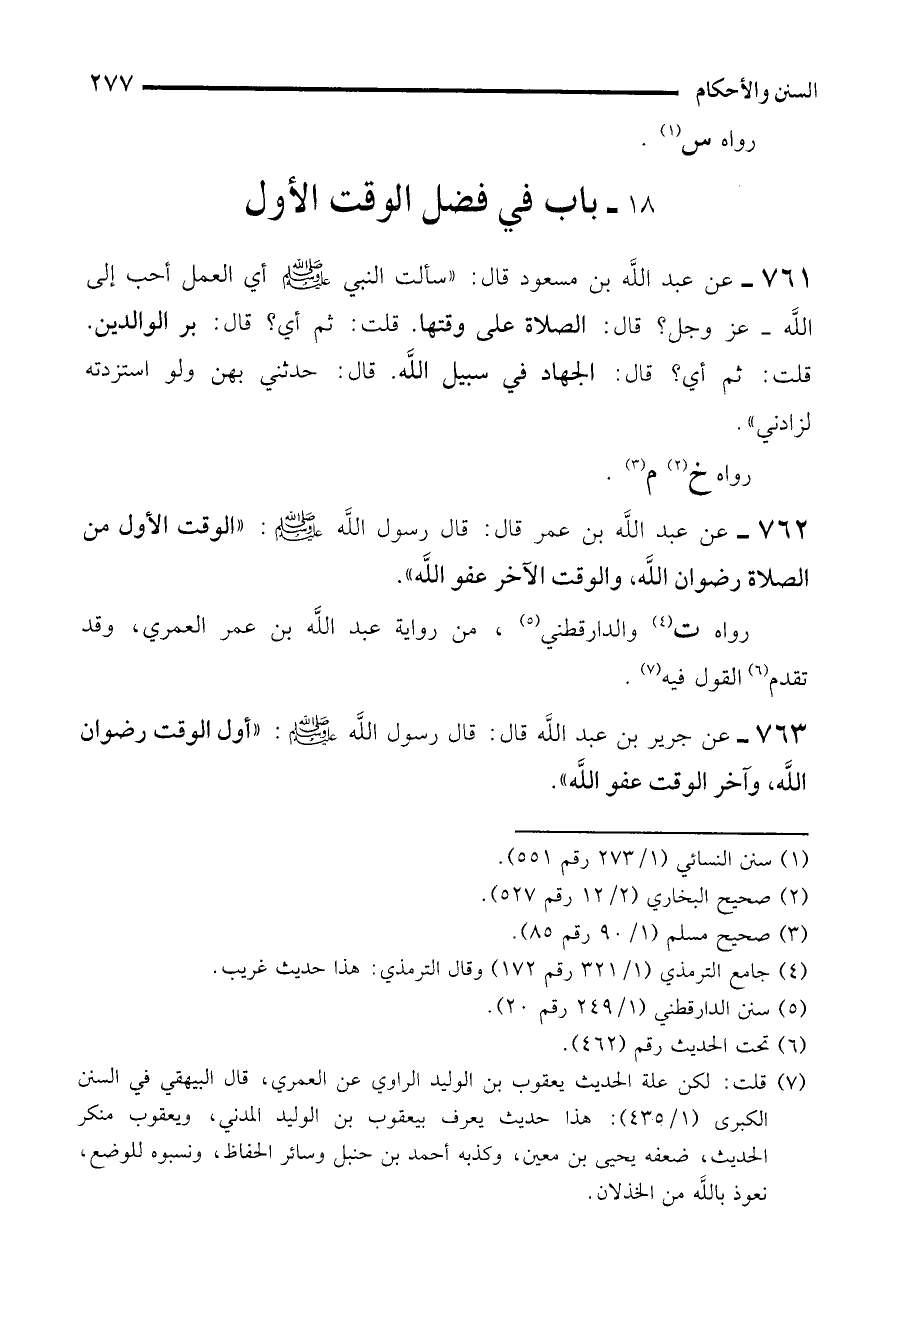 السنن والأحكام ٢٧٧
رواه س(١) .
١٨ ـ باب في فضل الوقت الأول
٧٦١ ـ عن عبد اللَّه بن مسعود قال: «سألت النبي ﷺ أي العمل أحب إلى
اللَّه ـ عز وجل؟ قال: الصلاة على وقتها. قلت: ثم أي؟ قال: بر الوالدين.
قلت: ثم أي؟ قال: الجهاد في سبيل اللَّه. قال: حدثني بهن ولو استزدته
لزادني» .
رواه خ(٢) م(٣) .
٧٦٢ ـ عن عبد اللَّه بن عمر قال: قال رسول اللَّه ﷺ : «الوقت الأول من
الصلاة رضوان اللَّه، والوقت الآخر عفو اللَّه».
رواه ت(٤) والدارقطني(٥) ، من رواية عبد اللَّه بن عمر العمري، وقد
تقدم(٦) القول فيه(٧) .
٧٦٣ ـ عن جرير بن عبد اللَّه قال: قال رسول اللَّه ﷺ : «أول الوقت رضوان
اللَّه، وآخر الوقت عفو اللَّه».
(١) سنن النسائي (١/ ٢٧٣ رقم ٥٥١).
(٢) صحيح البخاري (٢/ ١٢ رقم ٥٢٧).
(٣) صحيح مسلم (١/ ٩٠ رقم ٨٥).
(٤) جامع الترمذي (١/ ٣٢١ رقم ١٧٢) وقال الترمذي: هذا حديث غريب.
(٥) سنن الدارقطني (١/ ٢٤٩ رقم ٢٠).
(٦) تحت الحديث رقم (٤٦٢).
(٧) قلت: لكن علة الحديث يعقوب بن الوليد الراوي عن العمري، قال البيهقي في السنن
الكبرى (١/ ٤٣٥): هذا حديث يعرف بيعقوب بن الوليد المدني، ويعقوب منكر
الحديث، ضعفه يحيى بن معين، وكذبه أحمد بن حنبل وسائر الحفاظ، ونسبوه للوضع،
نعوذ باللَّه من الخذلان.